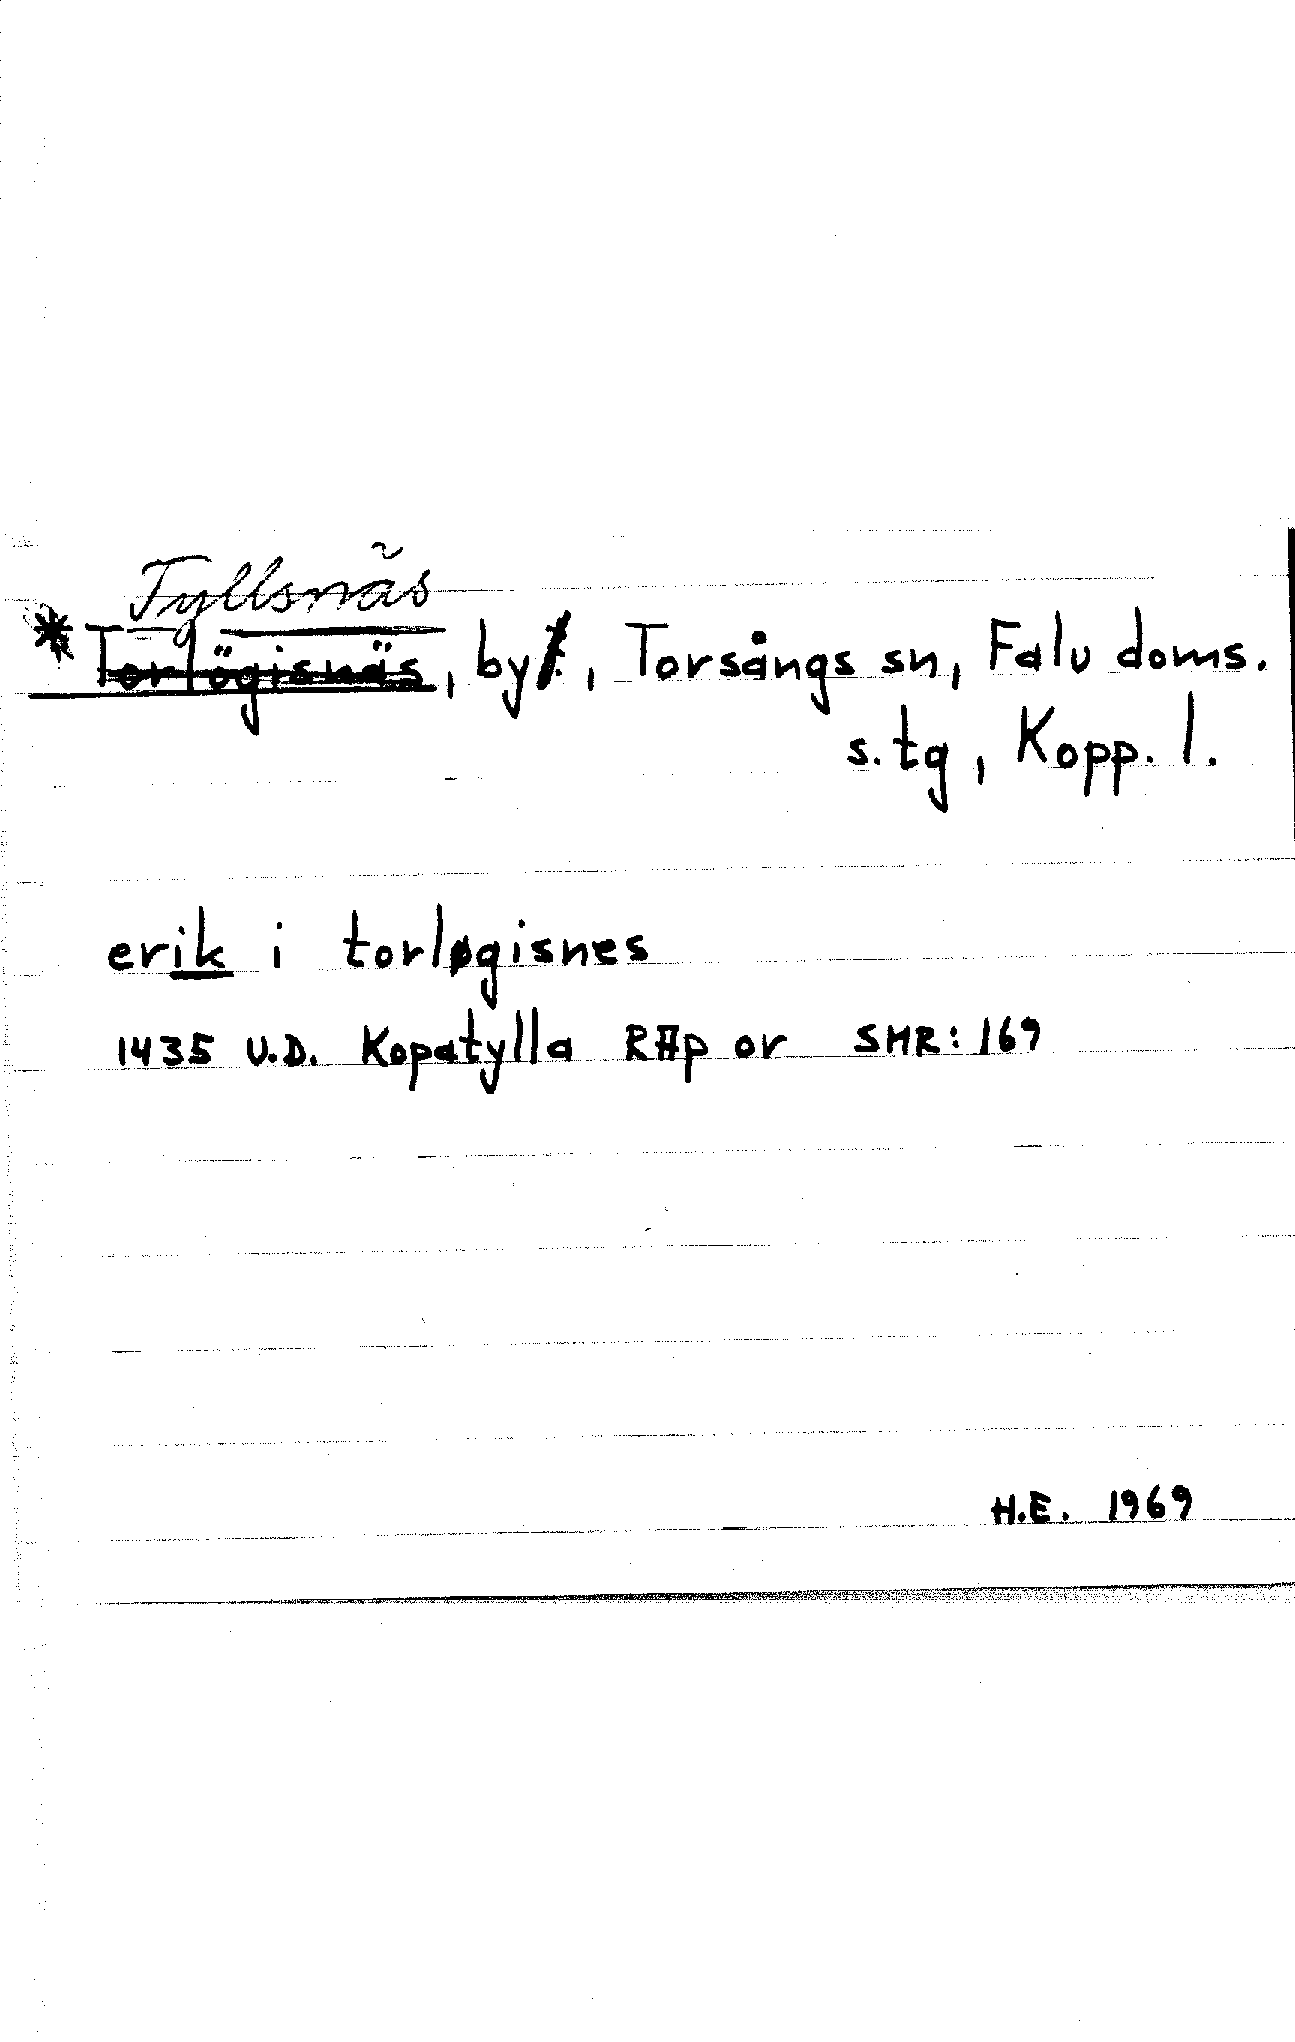 Tyllsnäs
* Torlögisnäs, by, Torsångs sn, Falu doms.
s.tg, Kopp. l.
erik i torløgisnes
1435 U.D. Kopatylla RAp or SMR: 169
H.E. 1969